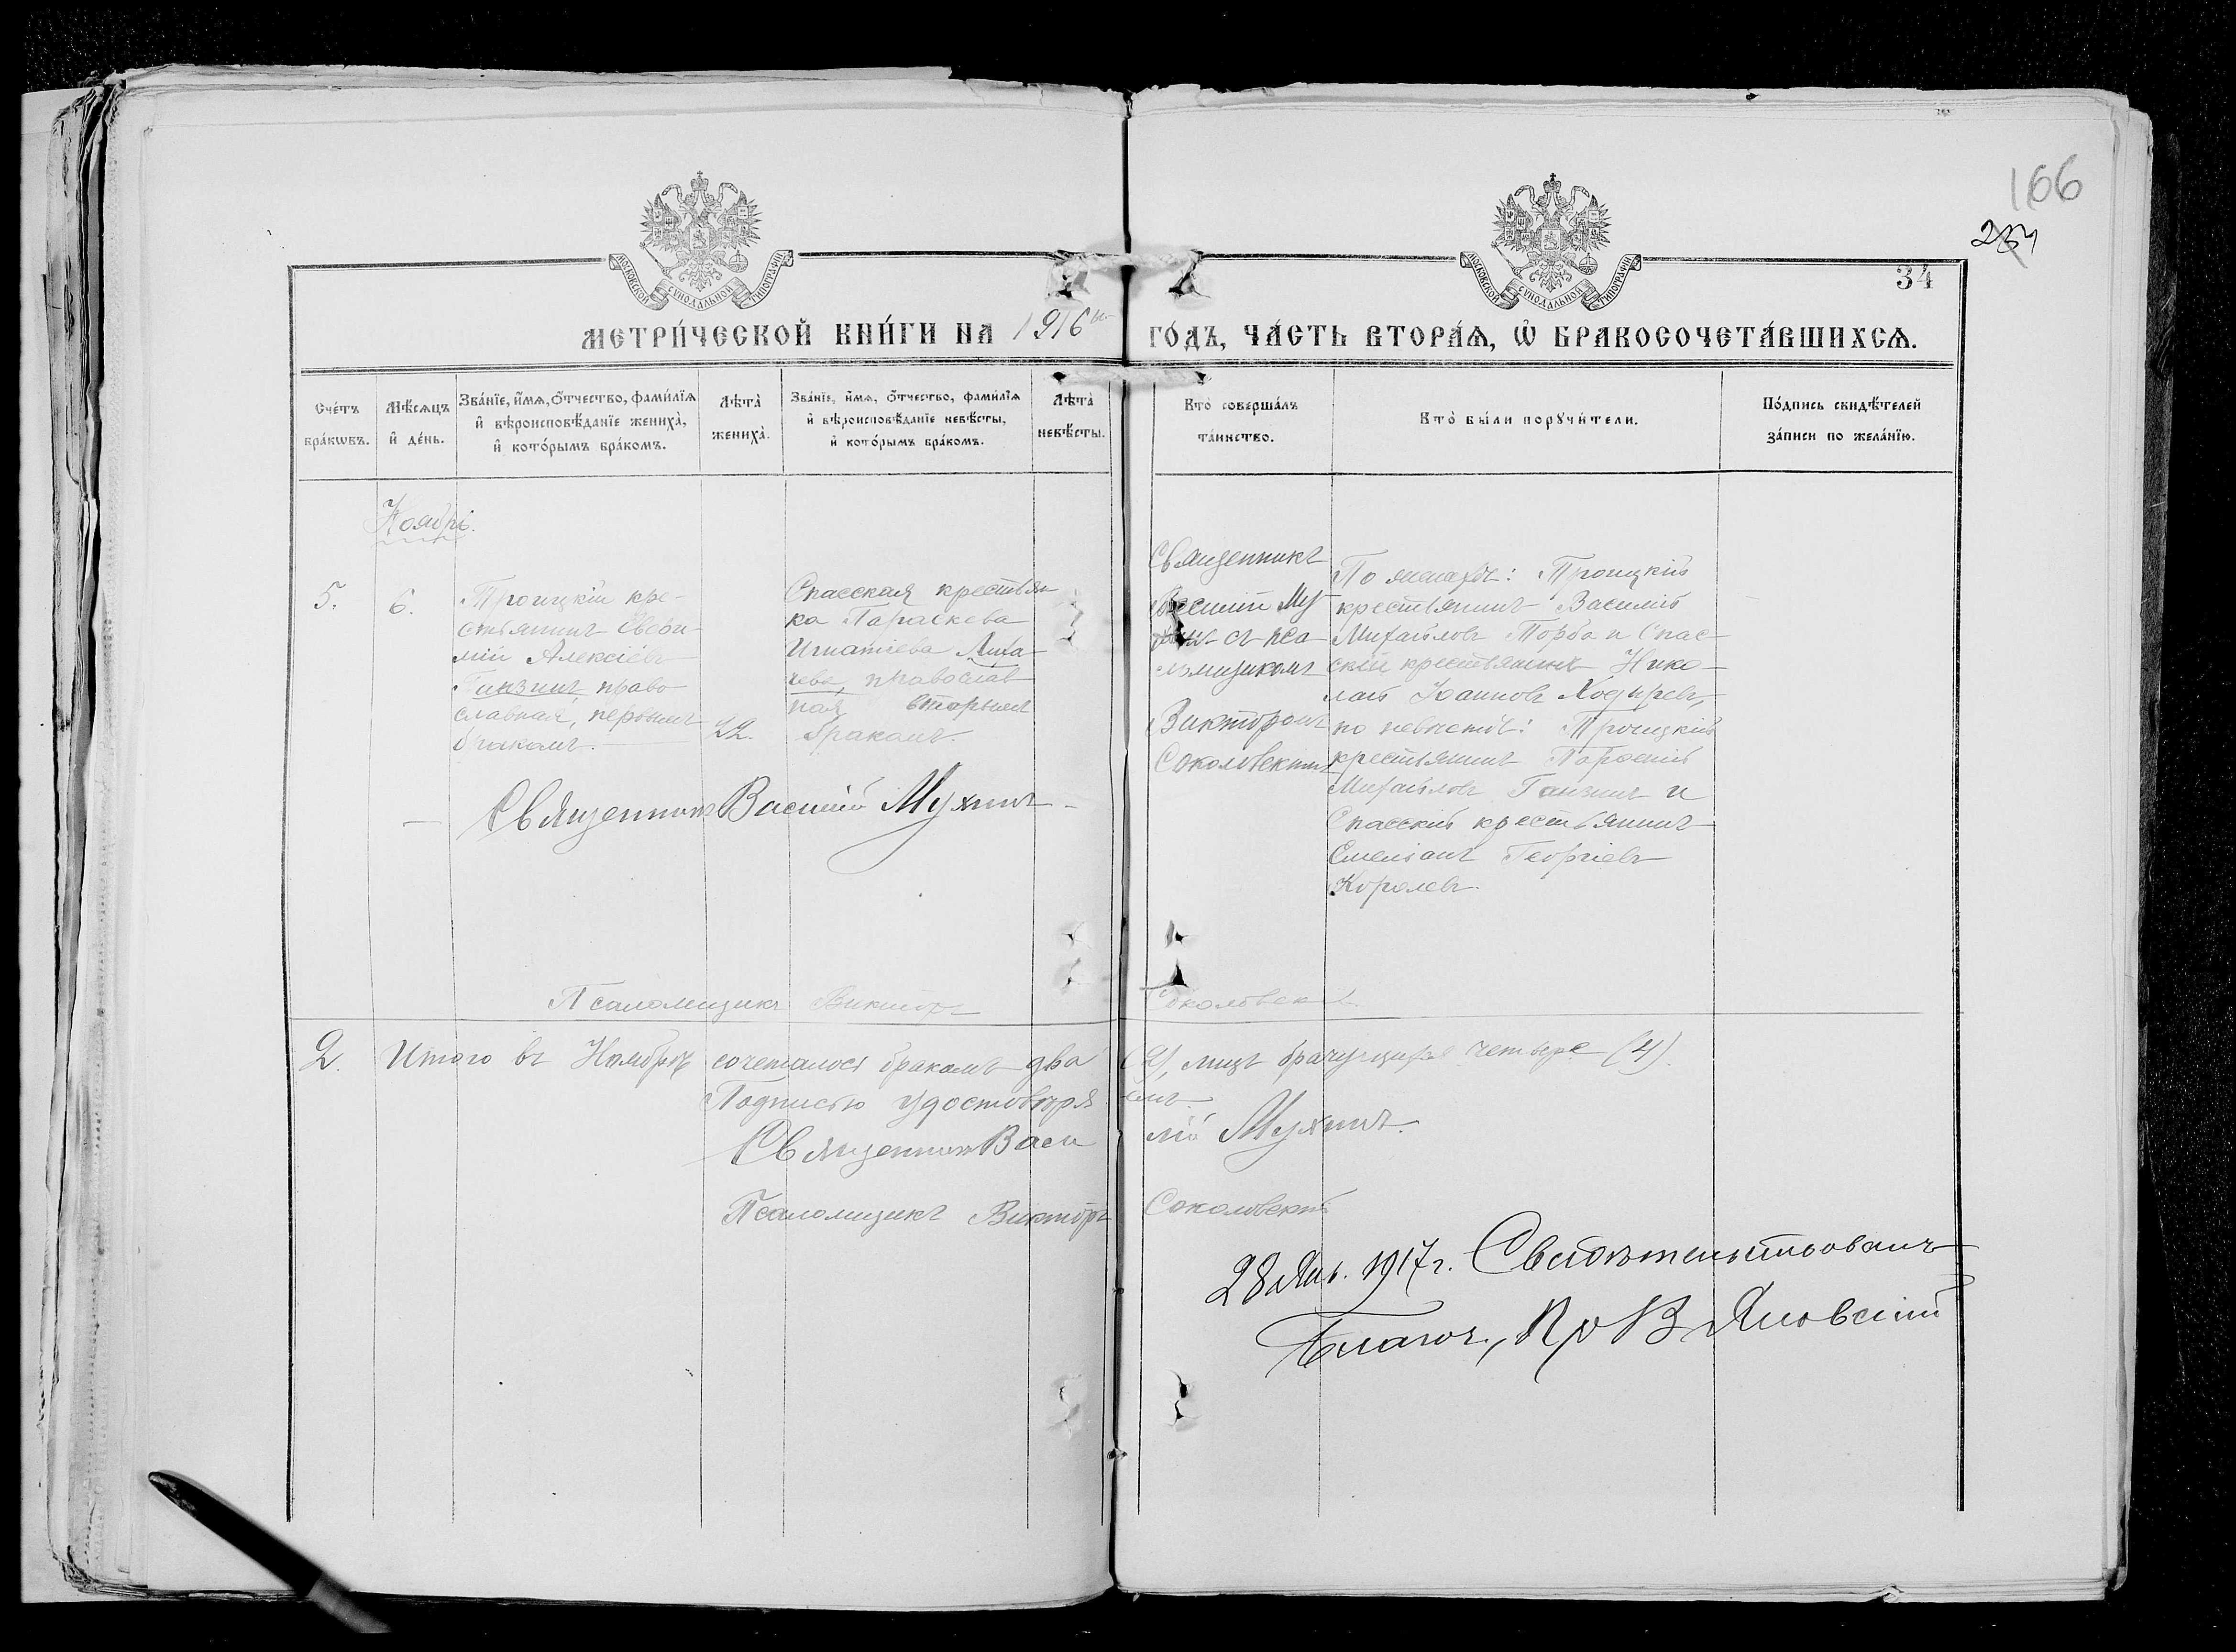 166
234
34
МОСКОВСКОЙ СѴНОДАЛЬНОЙ ТИПОГРАФІИ
МОСКОВСКОЙ СѴНОДАЛЬНОЙ ТИПОГРАФІИ
МЕТРИ́ЧЕСКОЙ КНИ́ГИ НА 1916й ГО́ДЪ, ЧА́СТЬ ВТОРА́Ѧ, Ѽ БРАКОСОЧЕТА́ВШИХСѦ.
Сче́тъ бра́кѡвъ.
Мѣ́сѧцъ и҆ де́нь.
Зва́нїе, и҆́мѧ, ѻ҆́тчество, фами́лїѧ и҆ вѣроисповѣ́данїе жениха̀, и҆ кото́рымъ бра́комъ.
Лѣта̀ жениха̀.
Зва́нїе, и҆́мѧ, ѻ҆́тчество, фами́лїѧ и҆ вѣроисповѣ́данїе невѣ́сты, и҆ кото́рымъ бра́комъ.
Лѣта̀ невѣ́сты.
Кто̀ соверша́лъ та́инство.
Кто̀ бы́ли порꙋчи́тели.
По́дпись свидѣ́телей за́писи по жела́нїю.
Ноябрь.
5.
6.
Троицкій кре-
стьянинъ Евѳи-
мій Алексіевъ
право-
славная, первымъ
бракомъ.
22.
Спасская крестьян
ка Параскева
Игнатіева Лиха-
чева, православ
ная вторымъ
бракомъ
Священникъ
Василій Му-
съ пса-
ломщикомъ
Викторомъ
Соколовскимъ
По женихѣ: Троицкій
крестьянинъ Василій
Михайловъ Торба и Спас-
скій крестьянинъ Нико-
лай Іоанновъ Ходыревъ,
по невѣстѣ: Троицкій
крестьянинъ
Михайловъ Ганзинъ и
Спасскій крестьянинъ
Емеліанъ Георгіевъ
Королевъ.
Священникъ Василій Мухинъ
Псаломщикъ Викторъ Соколовскій.
2. Итого въ Ноябрѣ сочеталось бракомъ два (2), лицъ брачущихся четыре (4).
Подписью удостовѣряемъ.
Священникъ Василій Мухинъ.
Псаломщикъ Викторъ Соколовскій
28 Янв. 1917 г. Свидѣтельствовалъ
Благоч., Пр В Яновскій